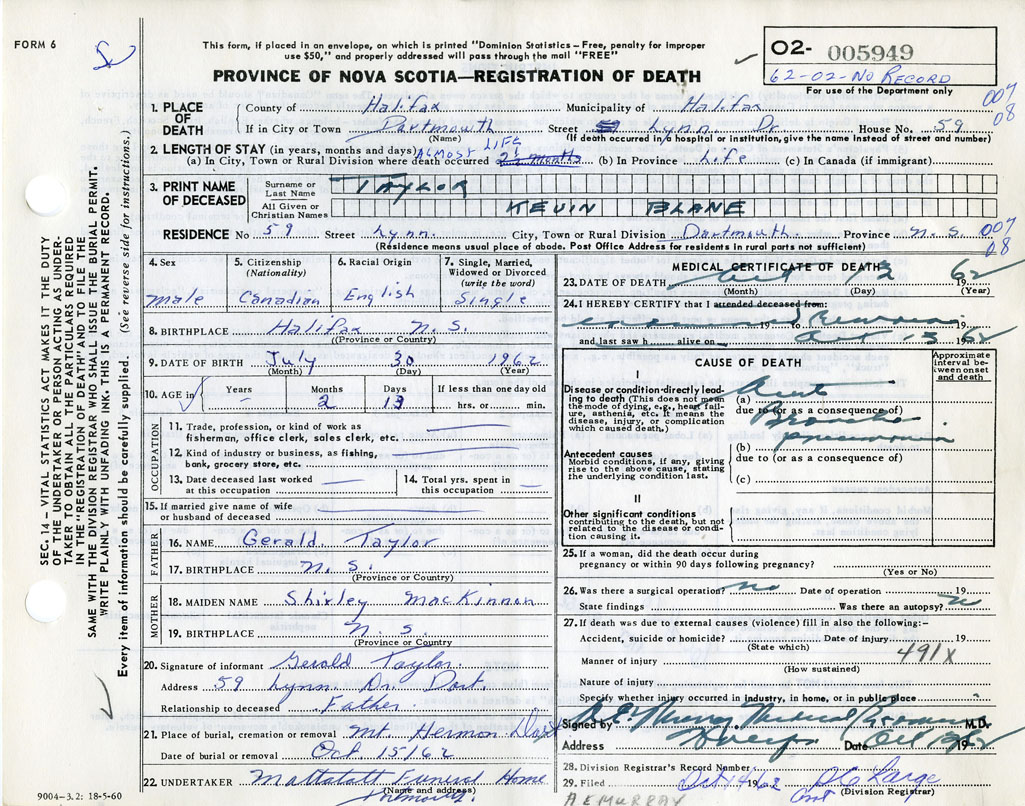 FORM 6
This form, if placed in an envelope, on which is printed "Dominion Statistics – Free, penalty for improper
use $50," and properly addressed will pass through the mail "FREE"
PROVINCE OF NOVA SCOTIA—REGISTRATION OF DEATH
02- 005949
62-02-No Record
For use of the Department only
007
08
SEC. 14 – VITAL STATISTICS ACT MAKES IT THE DUTY
OF THE UNDERTAKER OR PERSON ACTING AS UNDER-
TAKER TO OBTAIN ALL THE PARTICULARS REQUIRED
IN THE "REGISTRATION OF DEATH" AND TO FILE THE
SAME WITH THE DIVISION REGISTRAR WHO SHALL ISSUE THE BURIAL PERMIT.
WRITE PLAINLY WITH UNFADING INK. THIS IS A PERMANENT RECORD.
Every item of information should be carefully supplied. (See reverse side for instructions.)
1. PLACE OF DEATH County of Halifax Municipality of Halifax
If in City or Town Dartmouth Street Lynn Dr House No. 59
(Name) (If death occurred in a hospital or institution, give the name instead of street and number)
2. LENGTH OF STAY (in years, months and days) Almost Life
(a) In City, Town or Rural Division where death occurred 2½ months (b) In Province Life (c) In Canada (if immigrant)
3. PRINT NAME OF DECEASED Surname or Last Name TAYLOR
All Given or Christian Names KEVIN BLANE
RESIDENCE No 59 Street Lynn City, Town or Rural Division Dartmouth Province N.S. 007
08
(Residence means usual place of abode. Post Office Address for residents in rural parts not sufficient)
4. Sex Male
5. Citizenship (Nationality) Canadian
6. Racial Origin English
7. Single, Married, Widowed or Divorced (write the word) Single
8. BIRTHPLACE Halifax N.S.
(Province or Country)
9. DATE OF BIRTH July 30 1962
(Month) (Day) (Year)
10. AGE in Years – Months 2 Days 13 If less than one day old
hrs. or min.
OCCUPATION
11. Trade, profession, or kind of work as
fisherman, office clerk, sales clerk, etc.
12. Kind of industry or business, as fishing,
bank, grocery store, etc.
13. Date deceased last worked at this occupation
14. Total yrs. spent in this occupation
15. If married give name of wife
or husband of deceased
FATHER
16. NAME Gerald Taylor
17. BIRTHPLACE N.S.
(Province or Country)
MOTHER
18. MAIDEN NAME Shirley MacKinnon
19. BIRTHPLACE N.S.
(Province or Country)
20. Signature of informant Gerald Taylor
Address 59 Lynn Dr. Dart.
Relationship to deceased Father
21. Place of burial, cremation or removal Mt Hermon
Date of burial or removal Oct 15/62
22. UNDERTAKER Mattatall Funeral Home
(Name and address)
9004-3.2: 18-5-60
MEDICAL CERTIFICATE OF DEATH
23. DATE OF DEATH Oct 62
(Month) (Day) (Year)
24. I HEREBY CERTIFY that I attended deceased from:
19 to 19
and last saw h alive on Oct 13 1962
CAUSE OF DEATH
Approximate interval between onset and death
I
Disease or condition directly leading to death (This does not mean the mode of dying, e.g., heart failure, asthenia, etc. It means the disease, injury, or complication which caused death.)
(a) Acute
due to (or as a consequence of)
Broncho
(b) pneumonia
Antecedent causes
Morbid conditions, if any, giving rise to the above cause, stating the underlying condition last.
due to (or as a consequence of)
(c)
II
Other significant conditions
contributing to the death, but not related to the disease or condition causing it.
25. If a woman, did the death occur during
pregnancy or within 90 days following pregnancy?
(Yes or No)
26. Was there a surgical operation? no Date of operation 19
State findings Was there an autopsy? no
27. If death was due to external causes (violence) fill in also the following:–
Accident, suicide or homicide? Date of injury 19
(State which)
Manner of injury 491X
(How sustained)
Nature of injury
Specify whether injury occurred in industry, in home, or in public place
Signed by M.D.
Address Date Oct 1962
28. Division Registrar's Record Number
29. Filed Oct 14 1962
(Division Registrar)
A E MURRAY